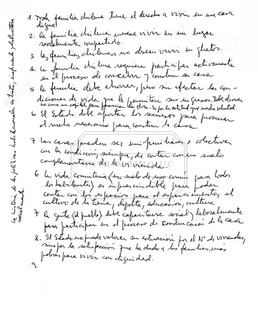 1. Toda familia chilena tiene el derecho a vivir en una casa
digna
2. La familia chilena merece vivir en un lugar
socialmente compartido.
3. Las familias chilenas no deben vivir en ghetos.
4. La familia chilena requiere participar activamente
en el proceso de concebir y construir su casa.
5. La familia debe ahorrar, pero sin afectar las con-
diciones de vida que le permiten
6. El Estado debe aportar los recursos para procurar
el suelo necesario para construir la casa.
7 Las casas pueden ser unifamiliares o colectivas
con la condición, siempre, de contar con un suelo
complementario de la vivienda.
6. La vida comunitaria (en suelo de uso común para todos
los habitantes) es imprescindible para poder
contar con los espacios para el esparcimiento, el
cultivo de la tierra, deporte, educación, cultura
7 La gente (el pueblo) debe capacitarse social y laboralmente
para participar en el proceso de construcción de la casa
8. El Estado no puede valorar su actuación por el Nº de viviendas,
sino por la satisfacción que ha dado a las familias más
pobres para vivir con dignidad.
9.